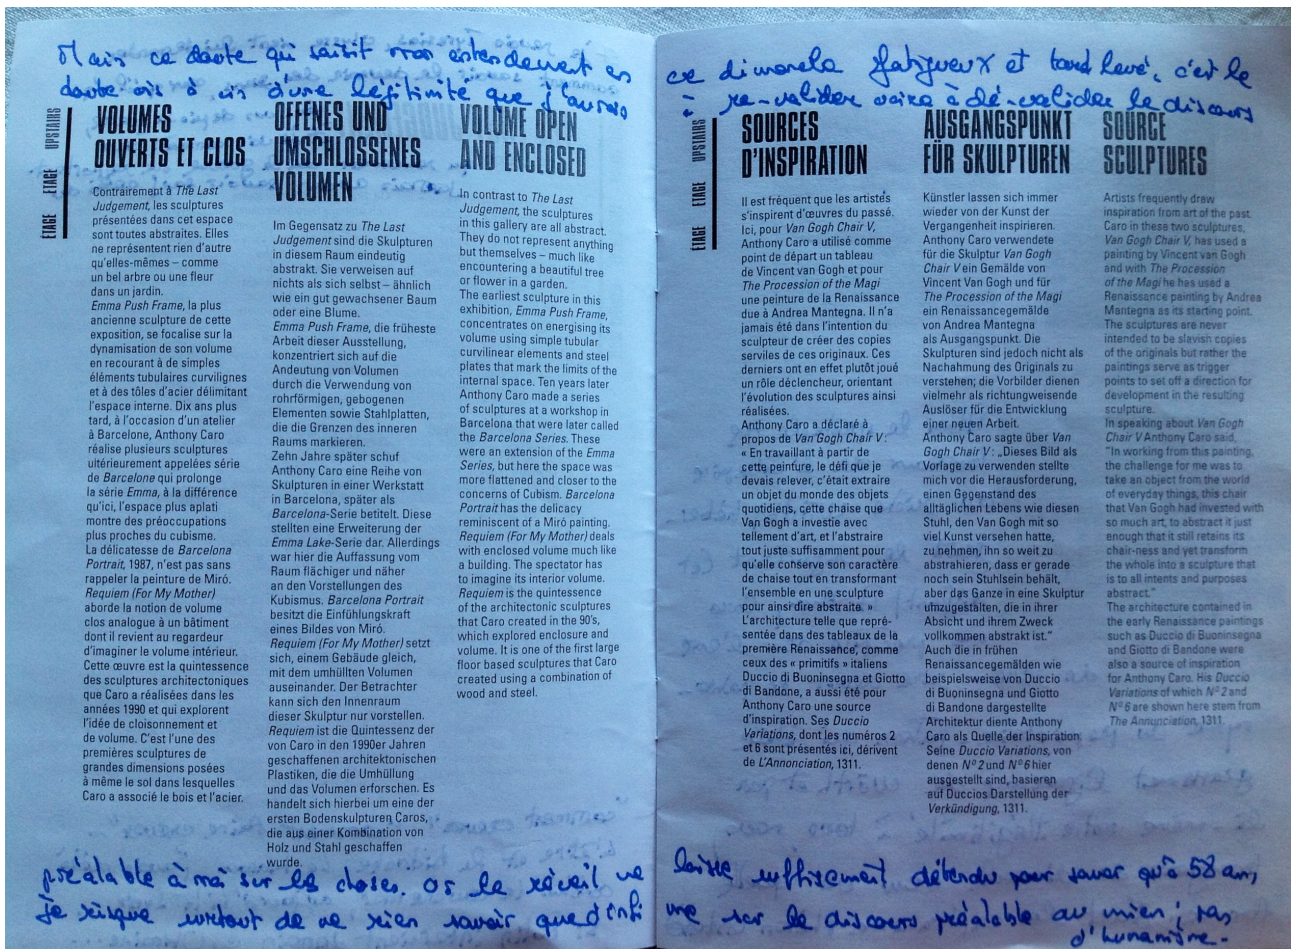 Mais ce doute qui saisit mon entendement en
doute vis à vis d'une légitimité que j'aurais
UPSTAIRS
ETAGE
ETAGE
VOLUMES
OUVERTS ET CLOS
Contrairement à The Last
Judgement, les sculptures
présentées dans cet espace
sont toutes abstraites. Elles
ne représentent rien d'autre
qu'elles-mêmes – comme
un bel arbre ou une fleur
dans un jardin.
Emma Push Frame, la plus
ancienne sculpture de cette
exposition, se focalise sur la
dynamisation de son volume
en recourant à de simples
éléments tubulaires curvilignes
et à des tôles d'acier délimitant
l'espace interne. Dix ans plus
tard, à l'occasion d'un atelier
à Barcelone, Anthony Caro
réalise plusieurs sculptures
ultérieurement appelées série
de Barcelone qui prolonge
la série Emma, à la différence
qu'ici, l'espace plus aplati
montre des préoccupations
plus proches du cubisme.
La délicatesse de Barcelona
Portrait, 1987, n'est pas sans
rappeler la peinture de Miró.
Requiem (For My Mother)
aborde la notion de volume
clos analogue à un bâtiment
dont il revient au regardeur
d'imaginer le volume intérieur.
Cette œuvre est la quintessence
des sculptures architectoniques
que Caro a réalisées dans les
années 1990 et qui explorent
l'idée de cloisonnement et
de volume. C'est l'une des
premières sculptures de
grandes dimensions posées
à même le sol dans lesquelles
Caro a associé le bois et l'acier.
OFFENES UND
UMSCHLOSSENES
VOLUMEN
Im Gegensatz zu The Last
Judgement sind die Skulpturen
in diesem Raum eindeutig
abstrakt. Sie verweisen auf
nichts als sich selbst – ähnlich
wie ein gut gewachsener Baum
oder eine Blume.
Emma Push Frame, die früheste
Arbeit dieser Ausstellung,
konzentriert sich auf die
Andeutung von Volumen
durch die Verwendung von
rohrförmigen, gebogenen
Elementen sowie Stahlplatten,
die die Grenzen des inneren
Raums markieren.
Zehn Jahre später schuf
Anthony Caro eine Reihe von
Skulpturen in einer Werkstatt
in Barcelona, später als
Barcelona-Serie betitelt. Diese
stellten eine Erweiterung der
Emma Lake-Serie dar. Allerdings
war hier die Auffassung vom
Raum flächiger und näher
an den Vorstellungen des
Kubismus. Barcelona Portrait
besitzt die Einfühlungskraft
eines Bildes von Miró.
Requiem (For My Mother) setzt
sich, einem Gebäude gleich,
mit dem umhüllten Volumen
auseinander. Der Betrachter
kann sich den Innenraum
dieser Skulptur nur vorstellen.
Requiem ist die Quintessenz der
von Caro in den 1990er Jahren
geschaffenen architektonischen
Plastiken, die die Umhüllung
und das Volumen erforschen. Es
handelt sich hierbei um eine der
ersten Bodenskulpturen Caros,
die aus einer Kombination von
Holz und Stahl geschaffen
wurde.
VOLUME OPEN
AND ENCLOSED
In contrast to The Last
Judgement, the sculptures
in this gallery are all abstract.
They do not represent anything
but themselves – much like
encountering a beautiful tree
or flower in a garden.
The earliest sculpture in this
exhibition, Emma Push Frame,
concentrates on energising its
volume using simple tubular
curvilinear elements and steel
plates that mark the limits of the
internal space. Ten years later
Anthony Caro made a series
of sculptures at a workshop in
Barcelona that were later called
the Barcelona Series. These
were an extension of the Emma
Series, but here the space was
more flattened and closer to the
concerns of Cubism. Barcelona
Portrait has the delicacy
reminiscent of a Miró painting.
Requiem (For My Mother) deals
with enclosed volume much like
a building. The spectator has
to imagine its interior volume.
Requiem is the quintessence
of the architectonic sculptures
that Caro created in the 90's,
which explored enclosure and
volume. It is one of the first large
floor based sculptures that Caro
created using a combination of
wood and steel.
préalable à moi sur les choses. Or le réveil ne
Je risque surtout de ne rien savoir que d'infi
ce dimanche fatigueux et tard levé, c'est le
à re-valider voire à dé-valider le discours
UPSTAIRS
ETAGE
ETAGE
SOURCES
D'INSPIRATION
Il est fréquent que les artistes
s'inspirent d'œuvres du passé.
Ici, pour Van Gogh Chair V,
Anthony Caro a utilisé comme
point de départ un tableau
de Vincent van Gogh et pour
The Procession of the Magi
une peinture de la Renaissance
due à Andrea Mantegna. Il n'a
jamais été dans l'intention du
sculpteur de créer des copies
serviles de ces originaux. Ces
derniers ont en effet plutôt joué
un rôle déclencheur, orientant
l'évolution des sculptures ainsi
réalisées.
Anthony Caro a déclaré à
propos de Van Gogh Chair V :
« En travaillant à partir de
cette peinture, le défi que je
devais relever, c'était extraire
un objet du monde des objets
quotidiens, cette chaise que
Van Gogh a investie avec
tellement d'art, et l'abstraire
tout juste suffisamment pour
qu'elle conserve son caractère
de chaise tout en transformant
l'ensemble en une sculpture
pour ainsi dire abstraite. »
L'architecture telle que repré-
sentée dans des tableaux de la
première Renaissance, comme
ceux des « primitifs » italiens
Duccio di Buoninsegna et Giotto
di Bandone, a aussi été pour
Anthony Caro une source
d'inspiration. Ses Duccio
Variations, dont les numéros 2
et 6 sont présentés ici, dérivent
de L'Annonciation, 1311.
AUSGANGSPUNKT
FÜR SKULPTUREN
Künstler lassen sich immer
wieder von der Kunst der
Vergangenheit inspirieren.
Anthony Caro verwendete
für die Skulptur Van Gogh
Chair V ein Gemälde von
Vincent Van Gogh und für
The Procession of the Magi
ein Renaissancegemälde
von Andrea Mantegna
als Ausgangspunkt. Die
Skulpturen sind jedoch nicht als
Nachahmung des Originals zu
verstehen; die Vorbilder dienen
vielmehr als richtungweisende
Auslöser für die Entwicklung
einer neuen Arbeit.
Anthony Caro sagte über Van
Gogh Chair V : „Dieses Bild als
Vorlage zu verwenden stellte
mich vor die Herausforderung,
einen Gegenstand des
alltäglichen Lebens wie diesen
Stuhl, den Van Gogh mit so
viel Kunst versehen hatte,
zu nehmen, ihn so weit zu
abstrahieren, dass er gerade
noch sein Stuhlsein behält,
aber das Ganze in eine Skulptur
umzugestalten, die in ihrer
Absicht und ihrem Zweck
vollkommen abstrakt ist."
Auch die in frühen
Renaissancegemälden wie
beispielsweise von Duccio
di Buoninsegna und Giotto
di Bandone dargestellte
Architektur diente Anthony
Caro als Quelle der Inspiration.
Seine Duccio Variations, von
denen N° 2 und N° 6 hier
ausgestellt sind, basieren
auf Duccios Darstellung der
Verkündigung, 1311.
SOURCE
SCULPTURES
Artists frequently draw
inspiration from art of the past.
Caro in these two sculptures,
Van Gogh Chair V, has used a
painting by Vincent van Gogh
and with The Procession
of the Magi he has used a
Renaissance painting by Andrea
Mantegna as its starting point.
The sculptures are never
intended to be slavish copies
of the originals but rather the
paintings serve as trigger
points to set off a direction for
development in the resulting
sculpture.
In speaking about Van Gogh
Chair V Anthony Caro said,
"In working from this painting,
the challenge for me was to
take an object from the world
of everyday things, this chair
that Van Gogh had invested with
so much art, to abstract it just
enough that it still retains its
chair-ness and yet transform
the whole into a sculpture that
is to all intents and purposes
abstract."
The architecture contained in
the early Renaissance paintings
such as Duccio di Buoninsegna
and Giotto di Bandone were
also a source of inspiration
for Anthony Caro. His Duccio
Variations of which N° 2 and
N° 6 are shown here stem from
The Annunciation, 1311.
laisse suffisamment détendu pour savoir qu'à 58 ans,
me sur le discours préalable au mien ; pas
d'humanisme -